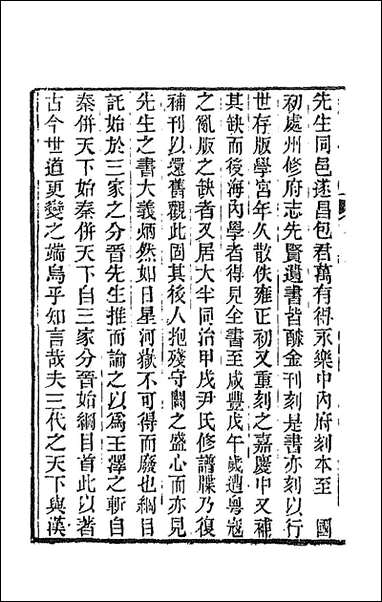 先生同邑遂昌包君萬有得永樂中內府刻本至　國
初處州修府志先賢遺書皆醵金刊刻是書亦刻以行
世存版學宮年久散佚雍正初又重刻之嘉慶中又補
其缺而後海內學者得見全書至咸豐戊午歲遭粵寇
之亂版之缺者又居大半同治甲戌尹氏修譜牒乃復
補刊以還舊觀此固其後人抱殘守闕之盛心而亦見
先生之書大義炳然如日星河嶽不可得而廢也綱目
託始於三家之分晉先生推而論之以為王澤之斬自
秦併天下始秦併天下自三家分晉始綱目首此以著
古今世道更變之端烏乎知言哉夫三代之天下與漢